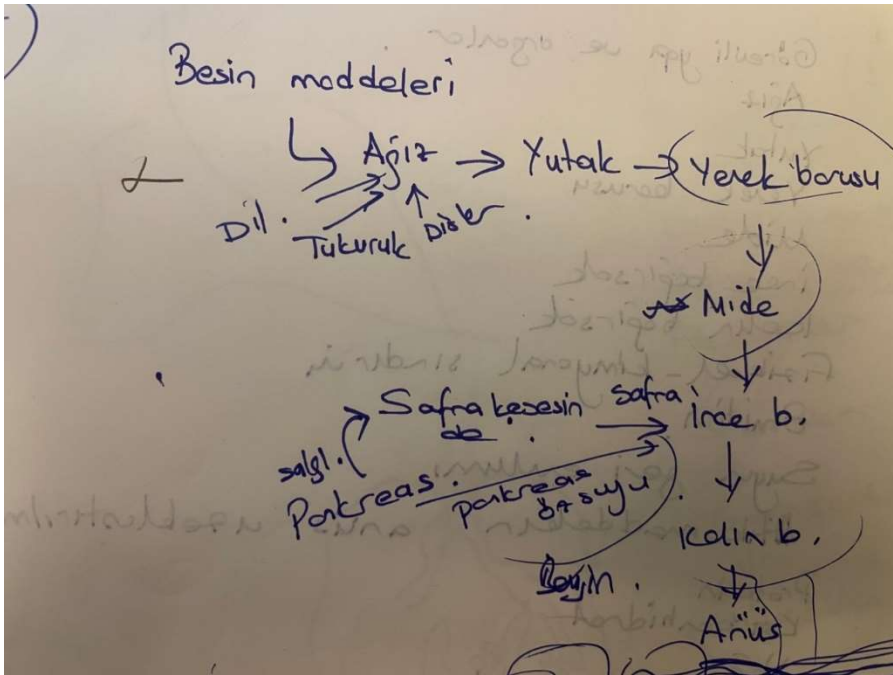 Besin maddeleri
Ağız → Yutak → Yemek borusu
Dil.
Tükürük
Dişler
Mide
Safra kesesin
de
safra
İnce b.
salgı.
Pankreas.
pankreas
özsuyu
Kalın b.
Beyin.
Anüs